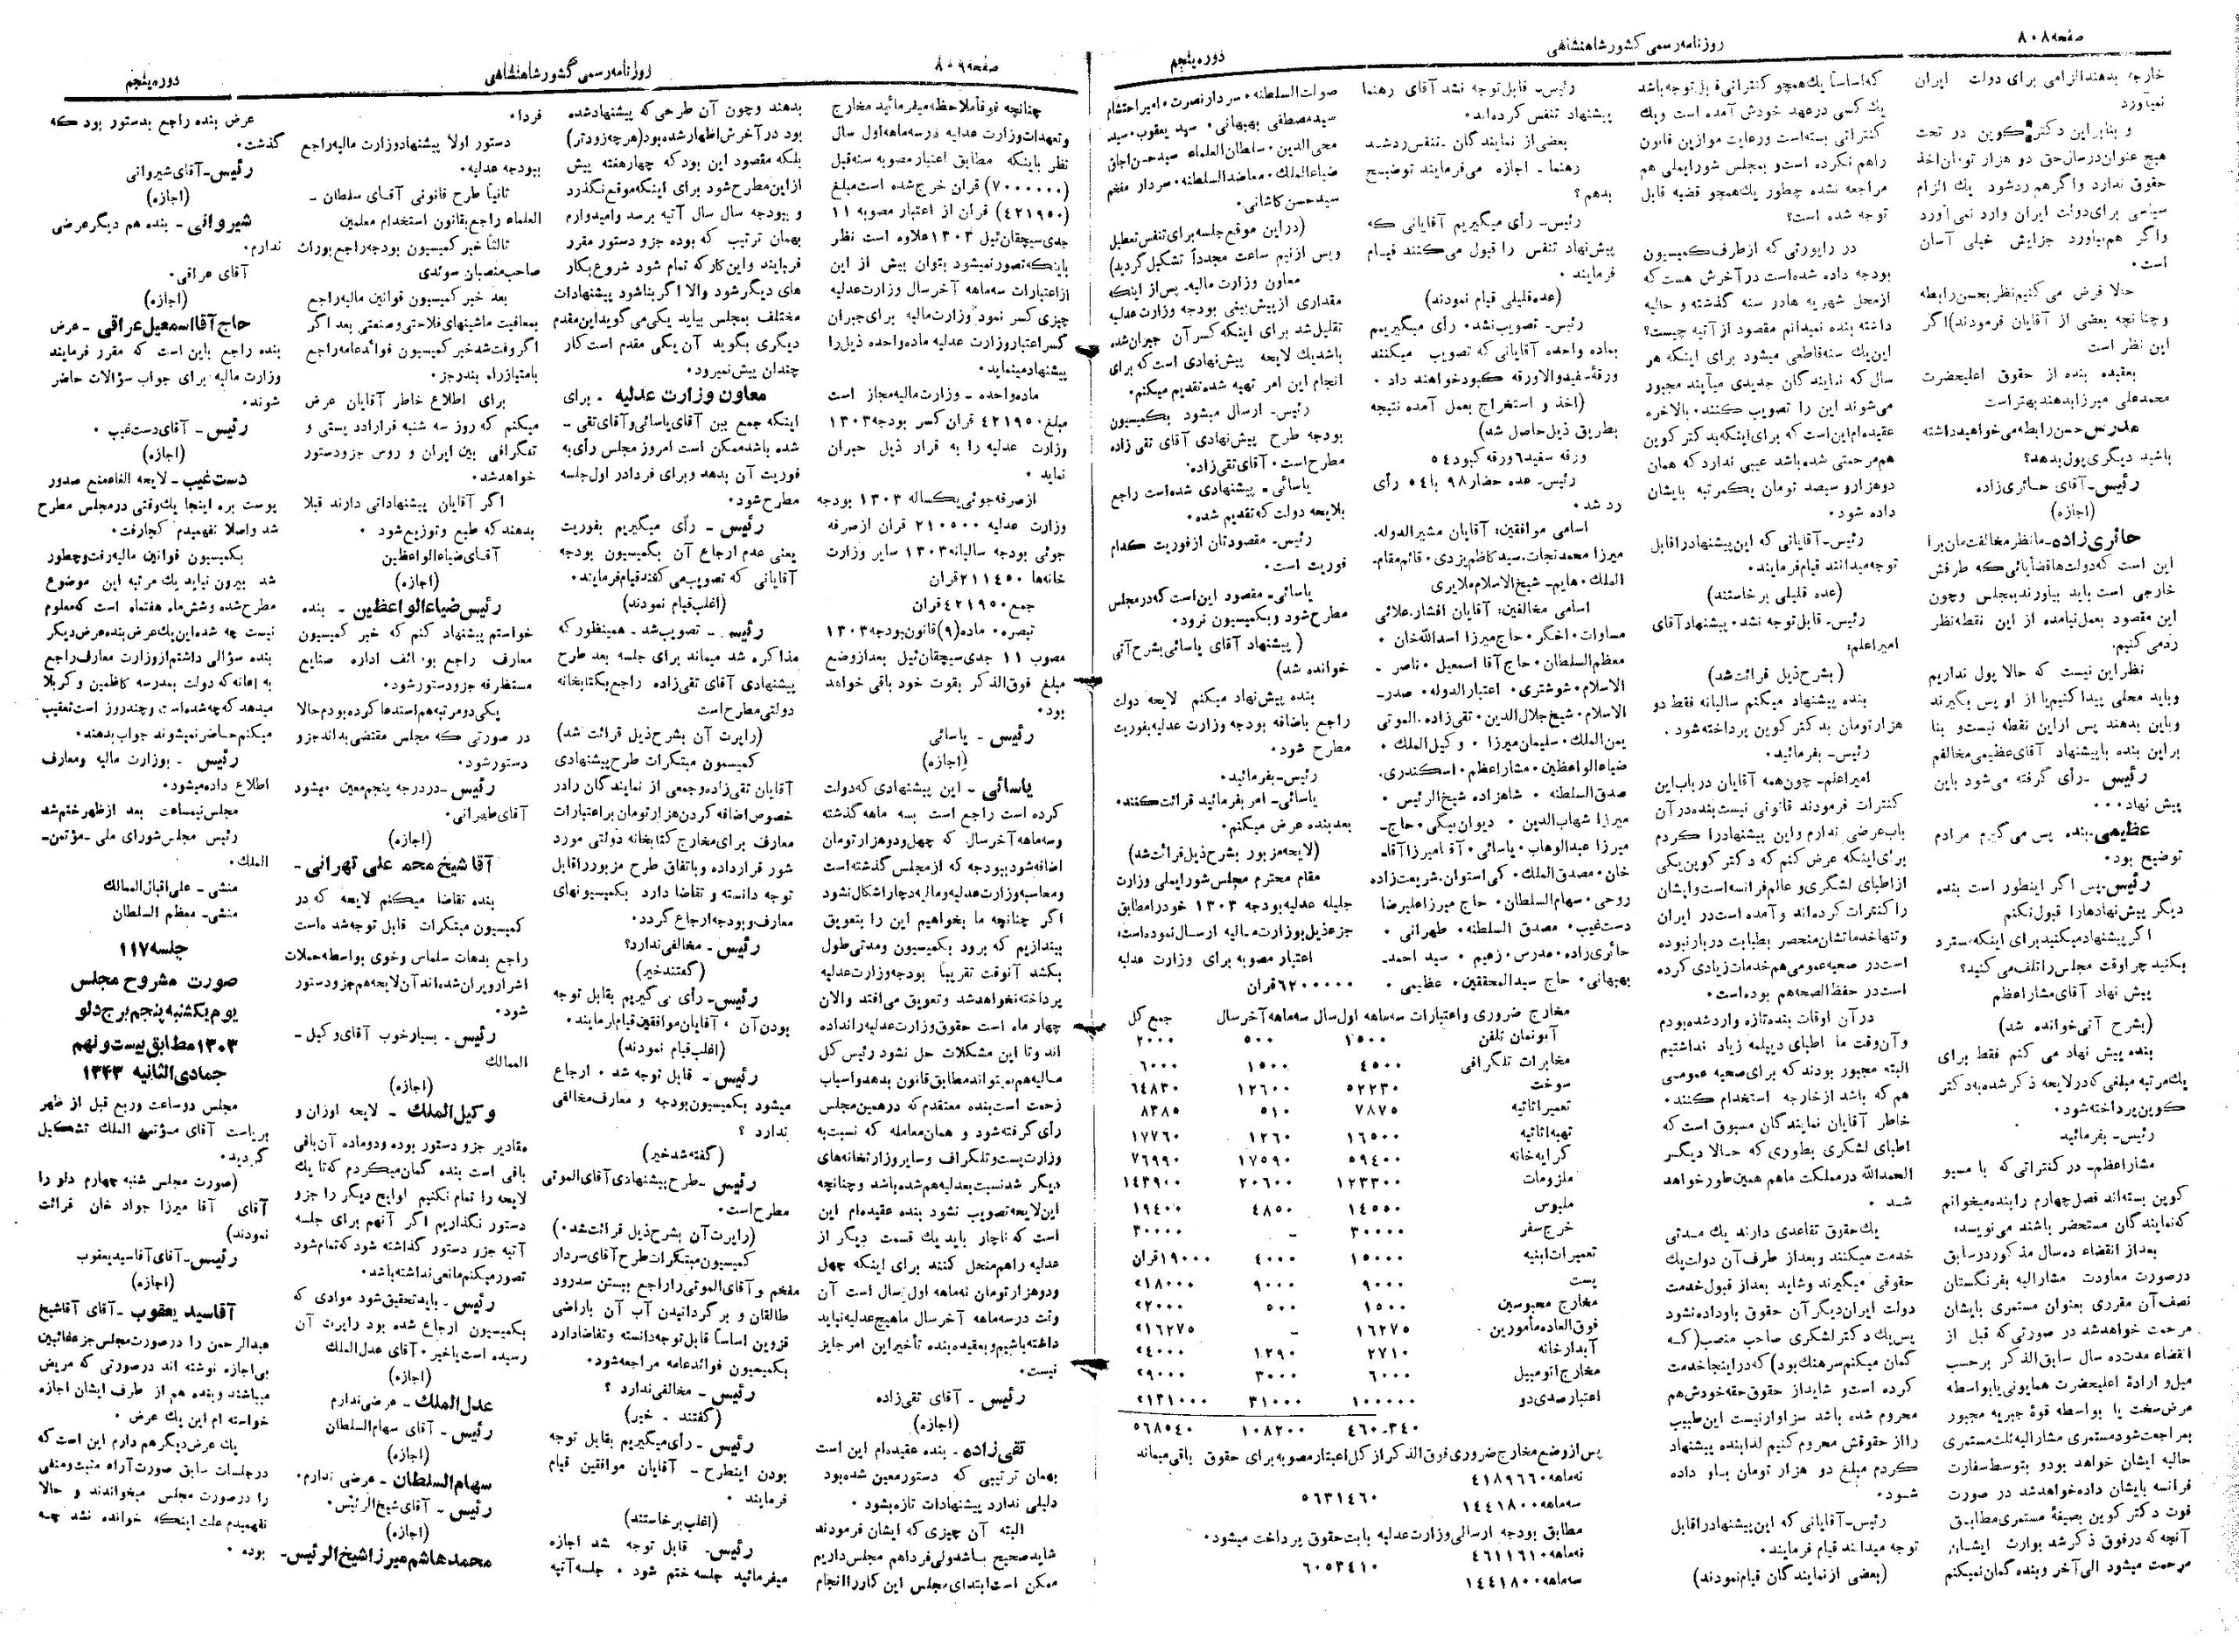 صفحه۸۰۸
روزنامه رسمی کشور شاهنشاهی
دوره پنجم
خارجه بدهند الزامی برای دولت ایران
نمیآورد
و بنابراین دکتر کوین در تحت
هیچ عنوان درسال حق دو هزار تومان اخذ
حقوق ندارد واگر هم رد شود یك الزام
سیاسی برای دولت ایران وارد نمی آورد
واگر هم بیاورد جزایش خیلی آسان
است۰
حالا فرض می کنیم نظر بحسن رابطه
وچنانچه بعضی از آقایان فرمودند) اگر
این نظر است
بعقیده بنده از حقوق اعلیحضرت
محمدعلی میرزا بدهند بهتر است
مدرس حسن رابطه می خواهید داشته
باشید دیگری پول بدهد؟
رئیس ـ آقای حائری زاده
(اجازه)
حائری زاده ـ ما نظر مخالفت مان برا
این است که دولت ها قضایائی که طرفش
خارجی است باید بیاورند بمجلس وچون
این مقصود بعمل نیامده از این نقطه نظر
رد می کنیم.
نظر این نیست که حالا پول نداریم
وباید محلی پیدا کنیم یا از او پس بگیرند
وباین بدهند پس از این نقطه نیست و بنا
بر این بنده با پیشنهاد آقای عظیمی مخالفم
رئیس ـ رأی گرفته می شود باین
پیش نهاد۰۰۰
عظیمی ـ بنده پس می گیرم مرادم
توضیح بود۰
رئیس ـ پس اگر اینطور است بنده
دیگر پیش نهادها را قبول نکنم
اگر پیشنهاد میکنید برای اینکه مسترد
بکنید چرا وقت مجلس را تلف می کنید؟
پیش نهاد آقای مشار اعظم
(بشرح آتی خوانده شد)
بنده پیش نهاد می کنم فقط برای
یك مرتبه مبلغی که در لایحه ذکر شده به دکتر
کوین پرداخته شود۰
رئیس ـ بفرمائید
مشار اعظم ـ در کنتراتی که با مسیو
کوین بسته اند فصل چهارم را بنده میخوانم
که نمایندگان مستحضر باشند می نویسد:
بعد از انقضاء ده سال مذکور در سابق
در صورت معاودت مشار الیه بفرنگستان
نصف آن مقرری بعنوان مستمری بایشان
مرحمت خواهد شد در صورتی که قبل از
انقضاء مدت ده سال سابق الذکر بر حسب
میل و ارادهٔ اعلیحضرت همایونی یا بواسطه
مرض سخت یا بواسطه قوهٔ جبریه مجبور
بمراجعت شود مستمری مشار الیه ثلث مستمری
حالیه ایشان خواهد بود و بتوسط سفارت
فرانسه بایشان داده خواهد شد در صورت
فوت دکتر کوین بصیغهٔ مستمری مطابق
آنچه که در فوق ذکر شد بوارث ایشان
مرحمت میشود الی آخر و بنده گمان نمیکنم
که اساساً یك همچو کنتراتی قابل توجه باشد
یك کسی در عهد خودش آمده است و یك
کنتراتی بسته است و رعایت موازین قانون
را هم نکرده است و بمجلس شورایملی هم
مراجعه نشده چطور یك همچو قضیه قابل
توجه شده است؟
در راپورتی که از طرف کمیسیون
بودجه داده شده است در آخرش هست که
از محل شهریه ها در سنه گذشته و حالیه
داشته بنده نمیدانم مقصود از آتیه چیست؟
این یك سنه قاطعی میشود برای اینکه هر
سال که نمایندگان جدیدی میآیند مجبور
می شوند این را تصویب کنند۰ بالاخره
عقیده ام این است که برای اینکه بدکتر کوین
هم مرحمتی شده باشد عیبی ندارد که همان
دوهزار و سیصد تومان یکمرتبه بایشان
داده شود۰
رئیس ـ آقایانی که این پیشنهاد را قابل
توجه میدانند قیام فرمایند۰
(عده قلیلی برخاستند)
رئیس ـ قابل توجه نشد۰ پیشنهاد آقای
امیر اعلم:
(بشرح ذیل قرائت شد)
بنده پیشنهاد میکنم سالیانه فقط دو
هزار تومان بدکتر کوین پرداخته شود.
رئیس ـ بفرمائید۰
امیر اعلم ـ چون همه آقایان در باب این
کنترات فرمودند قانونی نیست بنده در آن
باب عرضی ندارم و این پیشنهاد را کردم
برای اینکه عرض کنم که دکتر کوین یکی
از اطبای لشگری و عالم فرانسه است و ایشان
را کنترات کرده اند و آمده است در ایران
و تنها خدماتشان منحصر بطبابت دربار نبوده
است در صحیه عمومی هم خدمات زیادی کرده
است در حفظ الصحه هم بوده است۰
در آن اوقات بنده تازه وارد شده بودم
و آنوقت ما اطبای دیپلمه زیاد نداشتیم
البته مجبور بودند که برای صحیه عمومی
هم که باشد از خارجه استخدام کنند۰
خاطر آقایان نمایندگان مسبوق است که
اطبای لشکری بطوری که حالا دیگر
الحمدالله در مملکت ماهم همین طور خواهد
شد ۰
یك حقوق تقاعدی دارند یك مدتی
خدمت میکنند و بعد از طرف آن دولت یك
حقوقی میگیرند و شاید بعد از قبول خدمت
دولت ایران دیگر آن حقوق باو داده نشود
پس یك دکتر لشکری صاحب منصب (که
گمان میکنم سرهنك بود) که در اینجا خدمت
کرده است و شاید از حقوق حقه خودش هم
محروم شده باشد سزاوار نیست این طبیب
را از حقوقش محروم کنیم لذا بنده پیشنهاد
کردم مبلغ دو هزار تومان باو داده
شود۰
رئیس ـ آقایانی که این پیشنهاد را قابل
توجه میدانند قیام فرمایند۰
(بعضی از نمایندگان قیام نمودند)
رئیس ـ قابل توجه نشد آقای رهنما
پیشنهاد تنفس کرده اند.
بعضی از نمایندگان ـ تنفس رد شد
رهنما ـ اجازه می فرمایند توضیح
بدهم ؟
رئیس ـ رأی میگیریم آقایانی که
پیش نهاد تنفس را قبول می کنند قیام
فرمایند ۰
(عده قلیلی قیام نمودند)
رئیس ـ تصویب نشد۰ رأی میگیریم
بماده واحده آقایانی که تصویب میکنند
ورقهٔ سفید والا ورقه کبود خواهند داد ۰
(اخذ و استخراج بعمل آمده نتیجه
بطریق ذیل حاصل شد)
ورقه سفید۶ ورقه کبود ۵۴
رئیس ـ عده حضار ۹۸ با ۵۴ رأی
رد شد ۰
اسامی موافقین: آقایان مشیر الدوله.
میرزا محمد نجات ـ سید کاظم یزدی ۰ قائم مقام ـ
الملك ۰ هایم ـ شیخ الاسلام ملایری
اسامی مخالفین: آقایان افشار ـ علائی
مساوات ۰ اخگر ۰ حاج میرزا اسدالله خان ۰
معظم السلطان ۰ حاج آقا اسمعیل ۰ ناصر ـ
الاسلام ۰ شوشتری ۰ اعتبار الدوله ۰ صدر ـ
الاسلام ۰ شیخ جلال الدین ۰ تقی زاده ۰ الموتی
یمن الملك ۰ سلیمان میرزا ۰ وکیل الملك ۰
ضیاء الواعظین ۰ مشار اعظم ۰ اسکندری.
صدق السلطنه ۰ شاهزاده شیخ الرئیس ۰
میرزا شهاب الدین ۰ دیوان بیگی ۰ حاج ـ
میرزا عبدالوهاب ۰ یاسائی ۰ آقا میرزا آقا
خان ۰ مصدق الملك ۰ کی استوان ـ شریعت زاده
روحی ۰ سهام السلطان ۰ حاج میرزا علیرضا
دست غیب ۰ مصدق السلطنه ۰ طهرانی ۰
حائری زاده ۰ مدرس ۰ زعیم ۰ سید احمد ـ
بهبهانی ۰ حاج سید المحققین ۰ عظیمی ۰
صولت السلطنه ۰ سردار نصرت ۰ امیر احتشام
سید مصطفی بهبهانی ۰ سید یعقوب ۰ سید
محی الدین ۰ سلطان العلماء سید حسن اجاق
ضیاء الملك ۰ معاضد السلطنه ۰ سردار مفخم
سید حسن کاشانی.
(در این موقع جلسه برای تنفس تعطیل
و پس از نیم ساعت مجدداً تشکیل گردید)
معاون وزارت مالیه ـ پس از اینکه
مقداری از پیش بینی بودجه وزارت عدلیه
تقلیل شد برای اینکه کسر آن جبران شده
باشد یك لایحه پیش نهادی است که برای
انجام این امر تهیه شده تقدیم میکنم.
رئیس ـ ارسال میشود بکمیسیون
بودجه طرح پیش نهادی آقای تقی زاده
مطرح است ۰ آقای تقی زاده:
یاسائی ـ پیشنهادی شده است راجع
بلایحه دولت که تقدیم شده.
رئیس ـ مقصودتان از فوریت کدام
فوریت است ۰
یاسائی ـ مقصود این است که در مجلس
مطرح شود و بکمیسیون نرود۰
(پیشنهاد آقای یاسائی بشرح آتی
خوانده شد)
بنده پیش نهاد میکنم لایحه دولت
راجع باضافه بودجه وزارت عدلیه بفوریت
مطرح شود۰
رئیس ـ بفرمائید۰
یاسائی ـ امر بفرمائید قرائت کنند۰
بعد بنده عرض میکنم.
(لایحه مزبور بشرح ذیل قرائت شد)
مقام محترم مجلس شورایملی وزارت
جلیله عدلیه بودجه ۱۳۰۳ خود را مطابق
جزء ذیل بوزارت مالیه ارسال نموده است:
اعتبار مصوبه برای وزارت عدلیه
۶۲۰۰۰۰۰ قران
مخارج ضروری و اعتبارات سه ماهه اول سال سه ماهه آخر سال جمع کل
آبونمان تلفن ۱۵۰۰ ۵۰۰ ۲۰۰۰
مخابرات تلگرافی ۴۵۰۰ ۱۵۰۰ ۶۰۰۰
سوخت ۵۲۲۳۰ ۱۲۶۰۰ ۶۴۸۳۰
تعمیر اثاثیه ۷۸۷۵ ۵۱۰ ۸۳۸۵
تهیه اثاثیه ۱۶۵۰۰ ۱۲۶۰ ۱۷۷۶۰
کرایه خانه ۵۹۴۰۰ ۱۷۵۹۰ ۷۶۹۹۰
ملزومات ۱۲۳۳۰۰ ۲۰۶۰۰ ۱۴۳۹۰۰
ملبوس ۱۴۵۵۰ ۴۸۵۰ ۱۹۴۰۰
خرج سفر ۳۰۰۰۰ ـ ۳۰۰۰۰
تعمیرات ابنیه ۱۵۰۰۰ ۴۰۰۰ ۱۹۰۰۰ قران
پست ۹۰۰۰ ۹۰۰۰ ۱۸۰۰۰»
مخارج محبوسین ۱۵۰۰ ۵۰۰ ۲۰۰۰»
فوق العاده مأمورین ۱۶۲۷۵ ـ ۱۶۲۷۵»
آبدارخانه ۲۷۱۰ ۱۲۹۰ ۴۰۰۰»
مخارج اتومبیل ۶۰۰۰ ۳۰۰۰ ۹۰۰۰»
اعتبار صدی دو ۱۰۰۰۰۰ ۳۱۰۰۰ ۱۳۱۰۰۰»
۴۶۰۳۴۰ ۱۰۸۲۰۰ ۵۶۸۵۴۰
پس از وضع مخارج ضروری فوق الذکر از کل اعتبار مصوبه برای حقوق باقی میماند
نه ماهه ۴۱۸۹۶۶۰
سه ماهه ۱۴۴۱۸۰۰ ۵۶۳۱۴۶۰
مطابق بودجه ارسالی وزارت عدلیه بابت حقوق پرداخت میشود۰
نه ماهه ۴۶۱۱۶۱۰
سه ماهه ۱۴۴۱۸۰۰ ۶۰۵۳۴۱۰
صفحه۸۰۹
روزنامه رسمی کشور شاهنشاهی
دوره پنجم
چنانچه فوقاً ملاحظه میفرمائید مخارج
و تعهدات وزارت عدلیه در سه ماهه اول سال
نظر باینکه مطابق اعتبار مصوبه سنه قبل
(۷۰۰۰۰۰۰) قران خرج شده است مبلغ
(۴۲۱۹۵۰) قران از اعتبار مصوبه ۱۱
جدی سیچقان ئیل ۱۳۰۳ علاوه است نظر
باینکه تصور نمیشود بتوان بیش از این
از اعتبارات سه ماهه آخر سال وزارت عدلیه
چیزی کسر نمود وزارت مالیه برای جبران
کسر اعتبار وزارت عدلیه ماده واحده ذیل را
پیشنهاد مینماید۰
ماده واحده ـ وزارت مالیه مجاز است
مبلغ ۴۲۱۹۵۰ قران کسر بودجه ۱۳۰۳
وزارت عدلیه را به قرار ذیل جبران
نماید ۰
از صرفه جوئی یکساله ۱۳۰۳ بودجه
وزارت عدلیه ۲۱۰۵۰۰ قران از صرفه
جوئی بودجه سالیانه ۱۳۰۳ سایر وزارت
خانه ها ۲۱۱۴۵۰ قران
جمع ۴۲۱۹۵۰ قران
تبصره ۰ ماده (۹) قانون بودجه ۱۳۰۳
مصوب ۱۱ جدی سیچقان ئیل بعد از وضع
مبلغ فوق الذکر بقوت خود باقی خواهد
بود۰
رئیس ـ یاسائی
(اجازه)
یاسائی ـ این پیشنهادی که دولت
کرده است راجع است بسه ماهه گذشته
و سه ماهه آخر سال که چهل و دو هزار تومان
اضافه شود ببودجه که از مجلس گذشته است
و محاسبه وزارت عدلیه و مالیه دچار اشکال نشود
اگر چنانچه ما بخواهیم این را بتعویق
بیندازیم که برود بکمیسیون و مدتی طول
بکشد آنوقت تقریباً بودجه وزارت عدلیه
پرداخته نخواهد شد و تعویق می افتد والان
چهار ماه است حقوق وزارت عدلیه را نداده
اند و تا این مشکلات حل نشود رئیس کل
مالیه هم نمیتواند مطابق قانون بدهد و اسباب
زحمت است بنده معتقدم که در همین مجلس
رأی گرفته شود و همان معامله که نسبت به
وزارت پست و تلگراف و سایر وزارتخانه های
دیگر شد نسبت بعدلیه هم شده باشد و چنانچه
این لایحه تصویب نشود بنده عقیده ام این
است که ناچار باید یك قسمت دیگر از
عدلیه را هم منحل کنند برای اینکه چهل
و دو هزار تومان نه ماهه اول سال است آن
وقت در سه ماهه آخر سال ما هیچ عدلیه نباید
داشته باشیم و بعقیده بنده تأخیر این امر جایز
نیست۰
رئیس ـ آقای تقی زاده
(اجازه)
تقی زاده ـ بنده عقیده ام این است
بهمان ترتیبی که دستور معین شده بود
دلیلی ندارد پیشنهادات تازه بشود ۰
البته آن چیزی که ایشان فرمودند
شاید صحیح باشد ولی فردا هم مجلس داریم
ممکن است ابتدای مجلس این کار را انجام
بدهند و چون آن طرحی که پیشنهاد شده
بود در آخرش اظهار شده بود (هرچه زودتر)
بلکه مقصود این بود که چهار هفته پیش
از این مطرح شود برای اینکه موقع نگذرد
و ببودجه سال سال آتیه برسد و امیدوارم
بهمان ترتیب که بوده جزو دستور مقرر
فرمایند و این کار که تمام شود شروع بکار
های دیگر شود والا اگر بنا شود پیشنهادات
مختلف بمجلس بیاید یکی می گوید این مقدم
دیگری بگوید آن یکی مقدم است کار
چندان پیش نمیرود۰
معاون وزارت عدلیه ـ برای
اینکه جمع بین آقای یاسائی و آقای تقی ـ
شده باشد ممکن است امروز مجلس رأی به
فوریت آن بدهد و برای فردا در اول جلسه
مطرح شود۰
رئیس ـ رأی میگیریم بفوریت
یعنی عدم ارجاع آن بکمیسیون بودجه
آقایانی که تصویب می کنند قیام فرمایند۰
(اغلب قیام نمودند)
رئیس ـ تصویب شد ـ همینطور که
مذاکره شد میماند برای جلسه بعد طرح
پیشنهادی آقای تقی زاده راجع بکتابخانه
دولتی مطرح است
(راپرت آن بشرح ذیل قرائت شد)
کمیسیون مبتکرات طرح پیشنهادی
آقایان تقی زاده و جمعی از نمایندگان را در
خصوص اضافه کردن هزار تومان بر اعتبارات
معارف برای مخارج کتابخانه دولتی مورد
شور قرار داده و باتفاق طرح مزبور را قابل
توجه دانسته و تقاضا دارد بکمیسیونهای
معارف و بودجه ارجاع گردد۰
رئیس ـ مخالفی ندارد؟
(گفتند خیر)
رئیس ـ رأی می گیریم بقابل توجه
بودن آن ۰ آقایان موافقین قیام فرمایند۰
(اغلب قیام نمودند)
رئیس ـ قابل توجه شد ۰ ارجاع
میشود بکمیسیون بودجه و معارف مخالفی
ندارد ؟
(گفته شد خیر)
رئیس ـ طرح پیشنهادی آقای الموتی
مطرح است۰
(راپرت آن بشرح ذیل قرائت شد۰)
کمیسیون مبتکرات طرح آقای سردار
مفخم و آقای الموتی را راجع ببستن سد رود
طالقان و بر گردانیدن آب آن باراضی
قزوین اساساً قابل توجه دانسته و تقاضا دارد
بکمیسیون فوائد عامه مراجعه شود۰
رئیس ـ مخالفی ندارد ؟
(گفتند ـ خیر)
رئیس ـ رأی میگیریم بقابل توجه
بودن اینطرح ـ آقایان موافقین قیام
فرمایند ۰
(اغلب برخاستند)
رئیس ـ قابل توجه شد اجازه
میفرمائید جلسه ختم شود ۰ جلسه آتیه
فردا۰
دستور اولا پیشنهاد وزارت مالیه راجع
ببودجه عدلیه۰
ثانیاً طرح قانونی آقای سلطان ـ
العلماء راجع بقانون استخدام معلمین
ثالثاً خبر کمیسیون بودجه راجع بوراث
صاحب منصبان سوئدی
بعد خبر کمیسیون قوانین مالیه راجع
بمعافیت ماشینهای فلاحتی و صنعتی بعد اگر
اگر وقت شد خبر کمیسیون فوائد عامه راجع
بامتیاز راه بندر جز۰
برای اطلاع خاطر آقایان عرض
میکنم که روز سه شنبه قرارداد پستی و
تلگرافی بین ایران و روس جزو دستور
خواهد شد۰
اگر آقایان پیشنهاداتی دارند قبلا
بدهند که طبع و توزیع شود ۰
آقای ضیاء الواعظین
(اجازه)
رئیس ضیاء الواعظین ـ بنده
خواستم پیشنهاد کنم که خبر کمیسیون
معارف راجع بوظائف اداره صنایع
مستظرفه جزو دستور شود۰
یکی دو مرتبه هم استدعا کرده بودم حالا
در صورتی که مجلس مقتضی بداند جزو
دستور شود۰
رئیس ـ در درجه پنجم معین میشود
آقای طهرانی۰
(اجازه)
آقا شیخ محمد علی تهرانی ـ
بنده تقاضا میکنم لایحه که در
کمیسیون مبتکرات قابل توجه شده است
راجع بدهات سلماس و خوی بواسطه حملات
اشرار ویران شده اند آن لایحه هم جزو دستور
شود۰
رئیس ـ بسیار خوب آقای وکیل ـ
الممالك
(اجازه)
وکیل الملك ـ لایحه اوزان و
مقادیر جزو دستور بوده و دو ماده آن باقی
باقی است بنده گمان میکردم که تا یك
لایحه را تمام نکنیم لوایح دیگر را جزو
دستور نگذاریم اگر آنهم برای جلسه
آتیه جزو دستور گذاشته شود که تمام شود
تصور میکنم مانعی نداشته باشد۰
رئیس ـ باید تحقیق شود موادی که
بکمیسیون ارجاع شده بود راپرت آن
رسیده است یا خیر ۰ آقای عدل الملك
(اجازه)
عدل الملك ـ عرضی ندارم
رئیس ـ آقای سهام السلطان
(اجازه)
سهام السلطان ـ عرضی ندارم۰
رئیس ـ آقای شیخ الرئیس۰
(اجازه)
محمد هاشم میرزا شیخ الرئیس ـ
عرض بنده راجع بدستور بود که
گذشت۰
رئیس ـ آقای شیروانی
(اجازه)
شیروانی ـ بنده هم دیگر عرضی
ندارم.
آقای عراقی۰
(اجازه)
حاج آقا اسمعیل عراقی ـ عرض
بنده راجع باین است که مقرر فرمایند
وزارت مالیه برای جواب سؤالات حاضر
شوند۰
رئیس ـ آقای دست غیب ۰
(اجازه)
دست غیب ـ لایحه الغاء منع صدور
پوست بره اینجا یك وقتی در مجلس مطرح
شد و اصلا نفهمیدم کجا رفت۰
بکمیسیون قوانین مالیه رفت و چطور
شد بیرون نیاید یك مرتبه این موضوع
مطرح شده و شش ماه هفتماه است که معلوم
نیست چه شده این یك عرض بنده عرض دیگر
بنده سؤالی داشتم از وزارت معارف راجع
به اعانه که دولت بمدرسه کاظمین و کربلا
میدهد که چه شده است و چند روز است تعقیب
میکنم حاضر نمیشوند جواب بدهند۰
رئیس ـ بوزارت مالیه و معارف
اطلاع داده میشود۰
مجلس نیمساعت بعد از ظهر ختم شد
رئیس مجلس شورای ملی ـ مؤتمن ـ
الملك۰
منشی ـ علی اقبال الممالك
منشی ـ معظم السلطان
جلسه ۱۱۷
صورت مشروح مجلس
یوم یکشنبه پنجم برج دلو
۱۳۰۳ مطابق بیست و نهم
جمادی الثانیه ۱۳۴۳
مجلس دو ساعت و ربع قبل از ظهر
بریاست آقای مؤتمن الملك تشکیل
گردید۰
(صورت مجلس شنبه چهارم دلو را
آقای آقا میرزا جواد خان قرائت
نمودند)
رئیس ـ آقای آقا سید یعقوب
(اجازه)
آقا سید یعقوب ـ آقای آقا شیخ
عبدالرحمن را در صورت مجلس جزء غائبین
بی اجازه نوشته اند در صورتی که مریض
میباشند و بنده هم از طرف ایشان اجازه
خواسته ام این یك عرض ۰
یك عرض دیگر هم دارم این است که
در جلسات سابق صورت آراء مثبت و منفی
را در صورت مجلس میخواندند و حالا
نفهمیدم علت اینکه خوانده نشد چه
بوده ۰